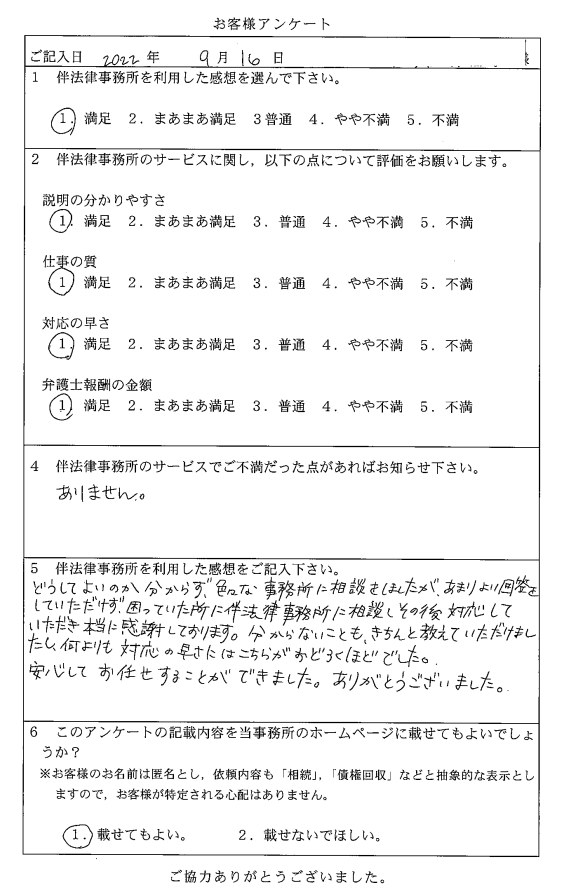 お客様アンケート
ご記入日 2022 年 9月 16 日 様
1 伴法律事務所を利用した感想を選んで下さい。
1. 満足 2. まあまあ満足 3 普通 4. やや不満 5. 不満
2 伴法律事務所のサービスに関し,以下の点について評価をお願いします。
説明の分かりやすさ
1. 満足 2. まあまあ満足 3. 普通 4. やや不満 5. 不満
仕事の質
1 満足 2. まあまあ満足 3. 普通 4. やや不満 5. 不満
対応の早さ
1. 満足 2. まあまあ満足 3. 普通 4. やや不満 5. 不満
弁護士報酬の金額
1. 満足 2. まあまあ満足 3. 普通 4. やや不満 5. 不満
4 伴法律事務所のサービスでご不満だった点があればお知らせ下さい。
ありません。
5 伴法律事務所を利用した感想をご記入下さい。
どうしてよいのか分からず、色々な事務所に相談をしましたが、あまりよい回答を
していただけず、困っていた所に伴法律事務所に相談しその後対応して
いただき本当に感謝しております。分からないことも、きちんと教えていただけまし
たし、何よりも対応の早さにはこちらがおどろくほどでした。
安心してお任せすることができました。ありがとうございました。
6 このアンケートの記載内容を当事務所のホームページに載せてもよいでしょ
うか?
※お客様のお名前は匿名とし,依頼内容も「相続」,「債権回収」などと抽象的な表示とし
ますので,お客様が特定される心配はありません。
1. 載せてもよい。 2. 載せないでほしい。
ご協力ありがとうございました。